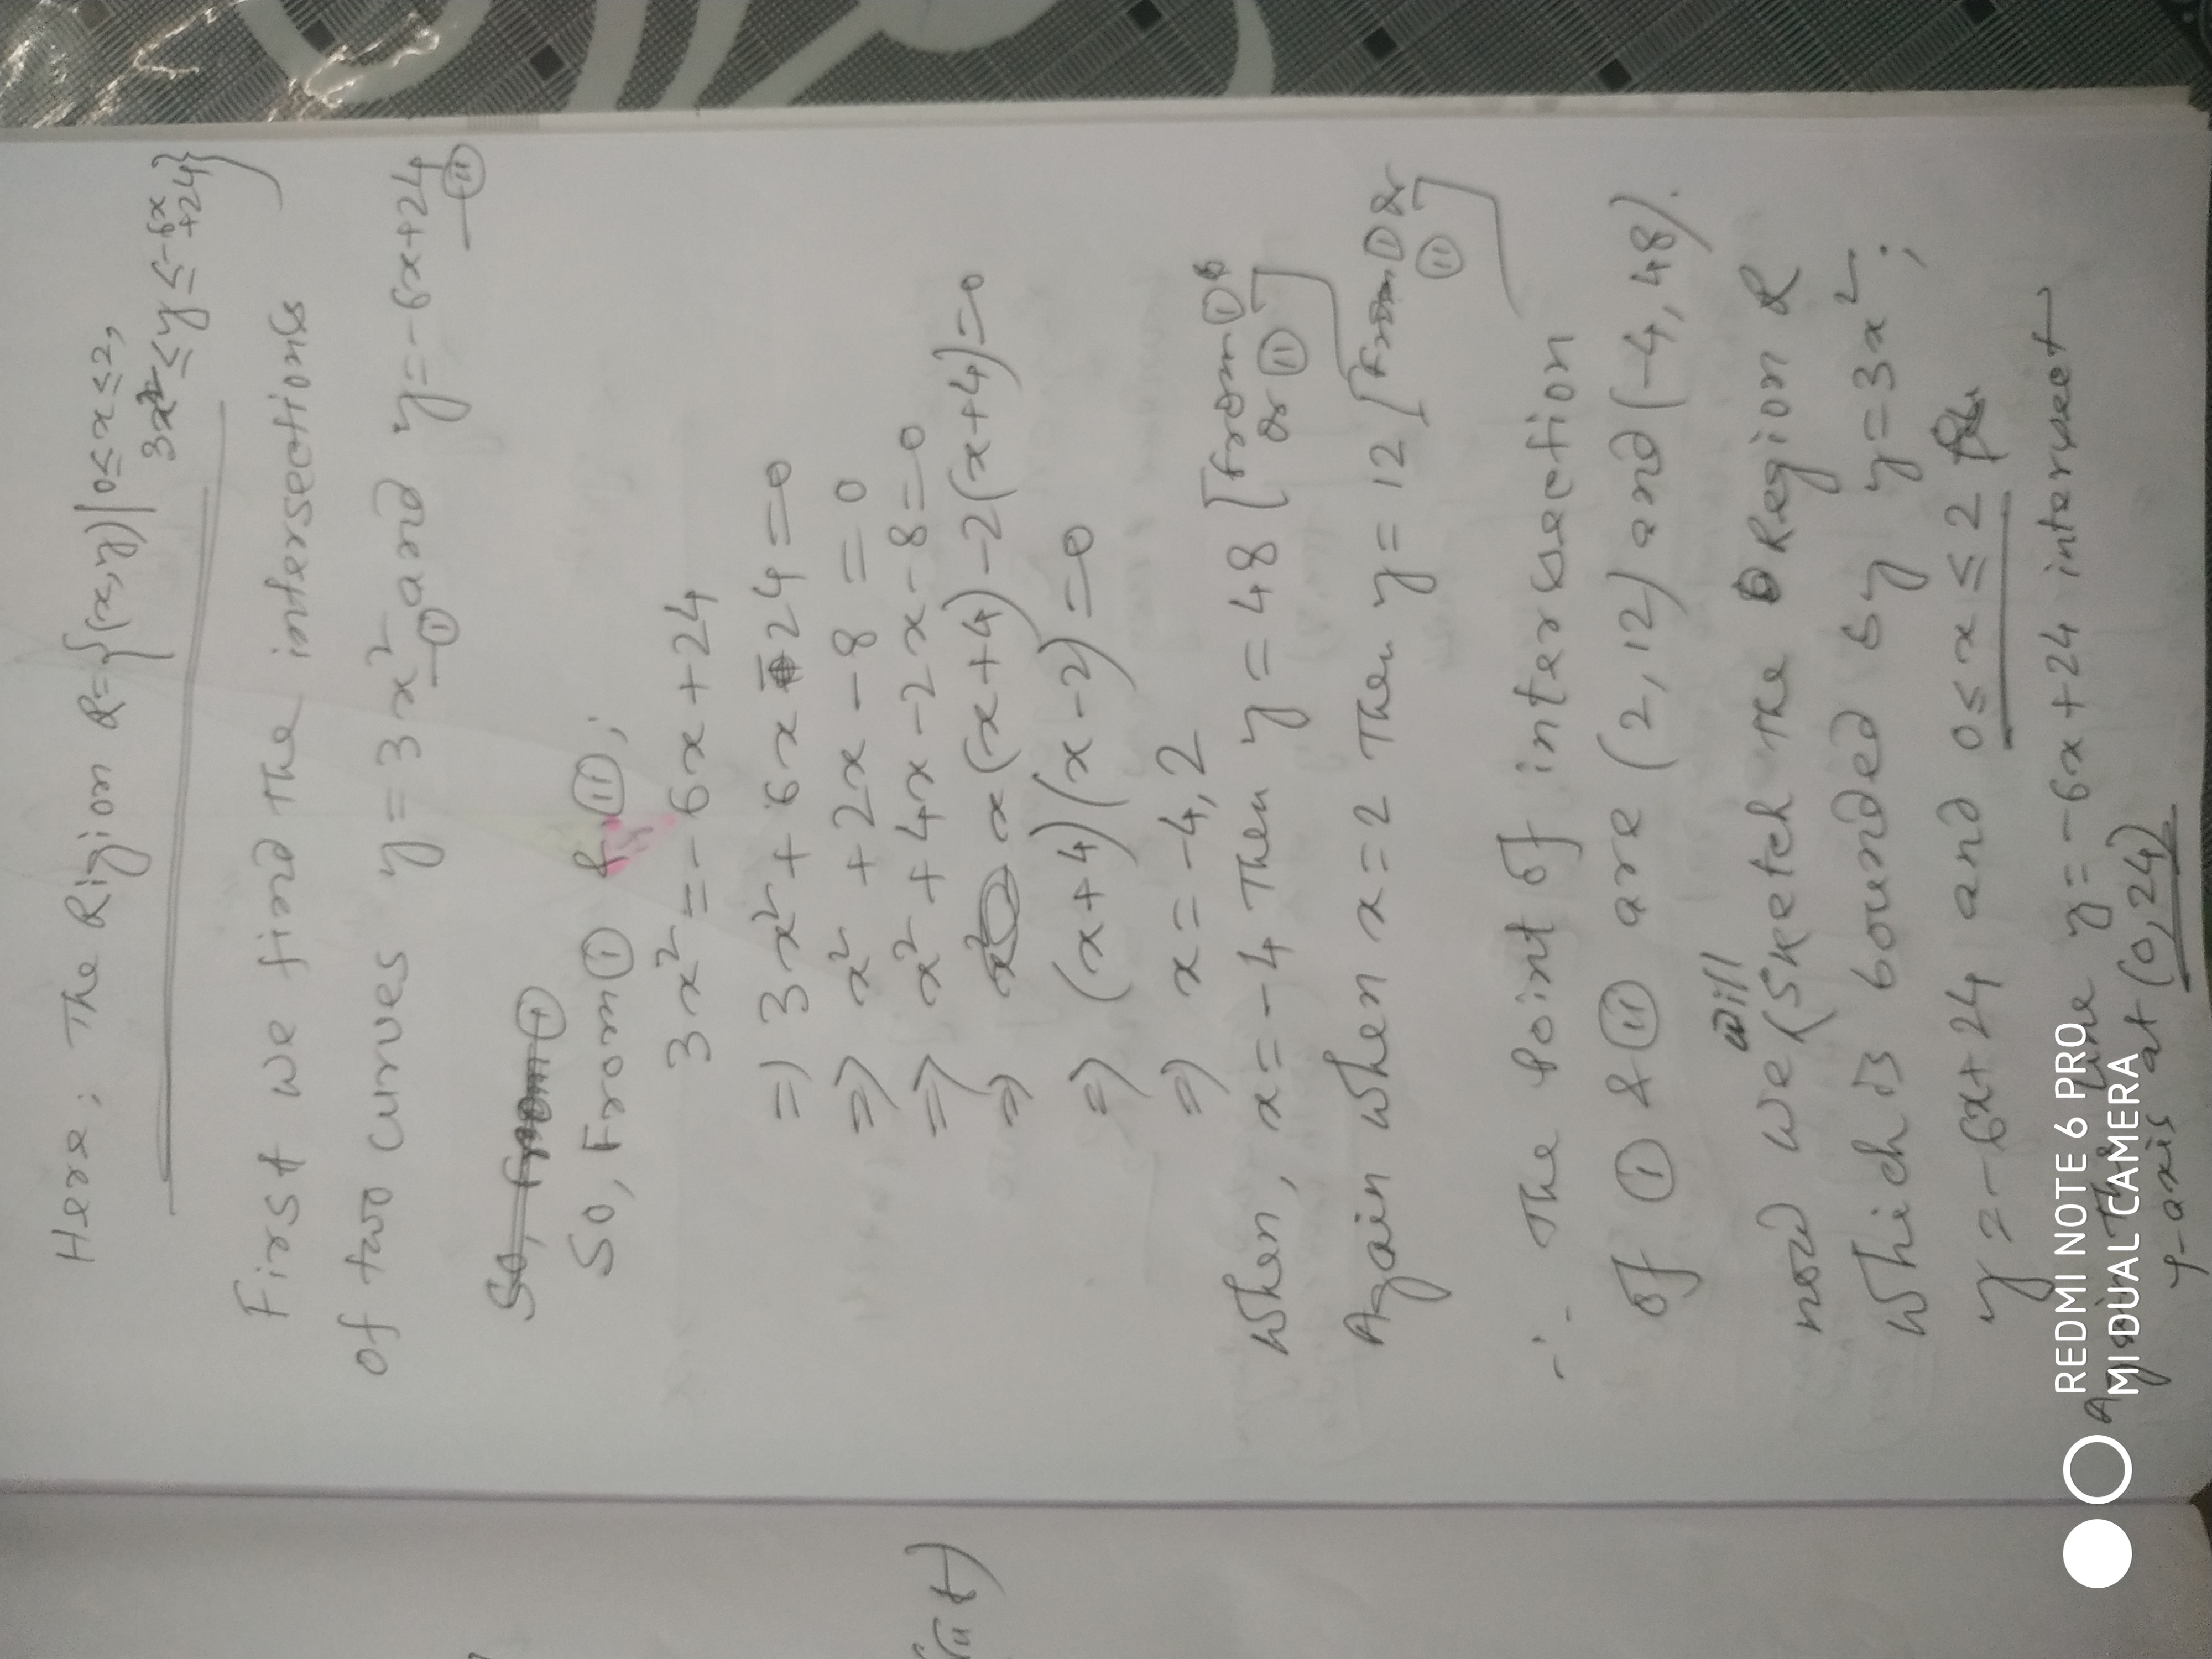 Here; The Rigion R={(x,y)|0≤x≤2,
3x²≤y≤-6x
+24}
First we find the intersections
of two curves y=3x² and y=-6x+24
—① —⑪
So, from ①
So, From ① & ⑪;
3x²=-6x+24
=) 3x²+6x-24=0
=> x²+2x-8=0
=> x²+4x-2x-8=0
=> x(x+4)-2(x+4)=0
=> (x+4)(x-2)=0
=> x=-4,2
When, x=-4 Then y=48 [from ①
or ⑪]
Again when x=2 Then y=12 [from ① or
⑪]
∴ The point of intersection
of ① & ⑪ are (2,12) and (-4,48).
will
now we sketch the Region R
Which is bounded by y=3x²;
y=-6x+24 and 0≤x≤2
Again The line y=-6x+24 intersect
y-axis at (0,24)
REDMI NOTE 6 PRO
MI DUAL CAMERA